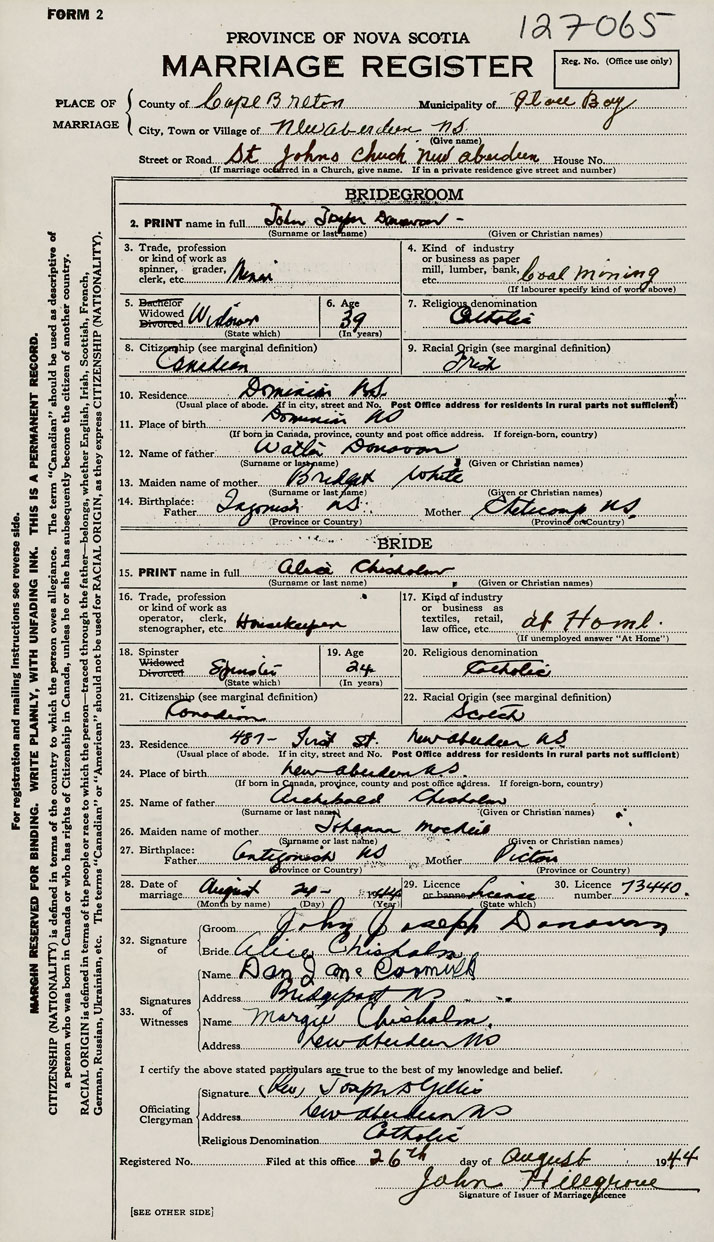 FORM 2
127065
PROVINCE OF NOVA SCOTIA
MARRIAGE REGISTER
Reg. No. (Office use only)
PLACE OF MARRIAGE
County of Cape Breton Municipality of Glace Bay
City, Town or Village of New Aberdeen N.S.
(Give name)
Street or Road St Johns Chuch New Aberdeen House No.
(If marriage occurred in a Church, give name. If in a private residence give street and number)
BRIDEGROOM
2. PRINT name in full John Joseph Donovan -
(Surname or last name) (Given or Christian names)
3. Trade, profession or kind of work as spinner, grader, clerk, etc. Miner
4. Kind of industry or business as paper mill, lumber, bank, etc. Coal Mining
(If labourer specify kind of work above)
5. Bachelor Widowed Divorced Widower
(State which)
6. Age 39
(In years)
7. Religious denomination Catholic
8. Citizenship (see marginal definition) Canadian
9. Racial Origin (see marginal definition) Irish
10. Residence Dominion N.S.
(Usual place of abode. If in city, street and No. Post Office address for residents in rural parts not sufficient)
11. Place of birth Dominion NS
(If born in Canada, province, county and post office address. If foreign-born, country)
12. Name of father Walter Donovan
(Surname or last name) (Given or Christian names)
13. Maiden name of mother Bridget White
(Surname or last name) (Given or Christian names)
14. Birthplace: Father Ingonish NS. Mother NS.
(Province or Country) (Province or Country)
BRIDE
15. PRINT name in full Alice Chisholm
(Surname or last name) (Given or Christian names)
16. Trade, profession or kind of work as operator, clerk, stenographer, etc. Housekeeper
17. Kind of industry or business as textiles, retail, law office, etc. at Home.
(If unemployed answer "At Home")
18. Spinster Widowed Divorced Spinster
(State which)
19. Age 24
(In years)
20. Religious denomination Catholic
21. Citizenship (see marginal definition) Canadian
22. Racial Origin (see marginal definition) Scotch
23. Residence 487- First St New Aberdeen N.S.
(Usual place of abode. If in city, street and No. Post Office address for residents in rural parts not sufficient)
24. Place of birth New Aberdeen N.S.
(If born in Canada, province, county and post office address. If foreign-born, country)
25. Name of father Archibald Chisholm
(Surname or last name) (Given or Christian names)
26. Maiden name of mother Johanna
(Surname or last name) (Given or Christian names)
27. Birthplace: Father Antigonish NS Mother Pictou
(Province or Country) (Province or Country)
28. Date of marriage August 24- 1944
(Month by name) (Day) (Year)
29. Licence or banns License
(State which)
30. Licence number 73440.
32. Signature of
Groom John Joseph Donovan
Bride Alice Chisholm
33. Signatures of Witnesses
Name Dan J McCormick
Address Bridgeport NS
Name Margie Chisholm.
Address New Aberdeen NS
I certify the above stated particulars are true to the best of my knowledge and belief.
Officiating Clergyman
Signature (Rev) Joseph D Gillis
Address New Aberdeen NS
Religious Denomination Catholic
Registered No. Filed at this office 26th day of August 1944
John Hillgrove
Signature of Issuer of Marriage Licence
[SEE OTHER SIDE]
For registration and mailing instructions see reverse side.
MARGIN RESERVED FOR BINDING. WRITE PLAINLY, WITH UNFADING INK. THIS IS A PERMANENT RECORD.
CITIZENSHIP (NATIONALITY) is defined in terms of the country to which the person owes allegiance. The term "Canadian" should be used as descriptive of
a person who was born in Canada or who has rights of Citizenship in Canada, unless he or she has subsequently become the citizen of another country.
RACIAL ORIGIN is defined in terms of the people or race to which the person—traced through the father—belongs, whether English, Irish, Scottish, French,
German, Russian, Ukrainian, etc. The terms "Canadian" or "American" should not be used for RACIAL ORIGIN, as they express CITIZENSHIP (NATIONALITY).